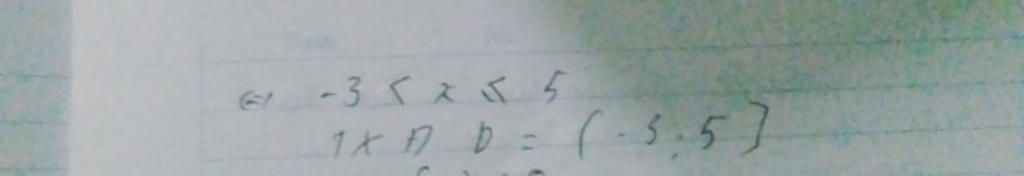 ⇔ -3 < x ≤ 5
TXĐ D = (-3; 5]